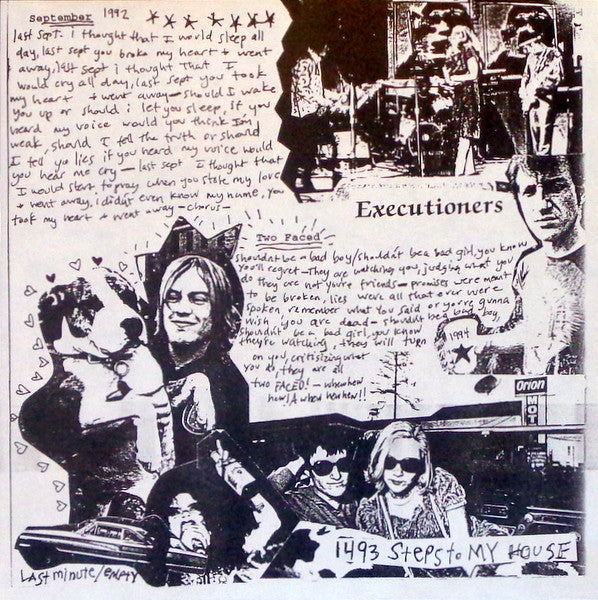 september 1992
last sept. i thought that I would sleep all
day, last sept you broke my heart & went
away, last sept i thought that I
would cry all day, last sept you took
my heart & went away - should I wake
you up or should i let you sleep, if you
heard my voice would you think I'm
weak, should I tell the truth or should
I tell yo lies if you heard my voice would
you hear me cry - last sept I thought that
I would start to pray when you stole my love
& went away, i didnt even know my name, you
took my heart & went away - chorus -
Executioners
Two Faced
shouldnt be a bad boy/shouldnt be a bad girl, you know
you'll regret - They are watching you, judging what you
do they are not youre friends - promises were meant
to be broken, lies were all that ever were
spoken, remember what you said or you're gunna
wish you are dead - shouldnt be a bad boy,
shouldnt be a bad girl, you know
they're watching, they will turn
on you, critisizing what
you do, they are all
two FACED! -
1994
Orion
MOT
1493 Steps to MY HOUSE
LAST minute/empty